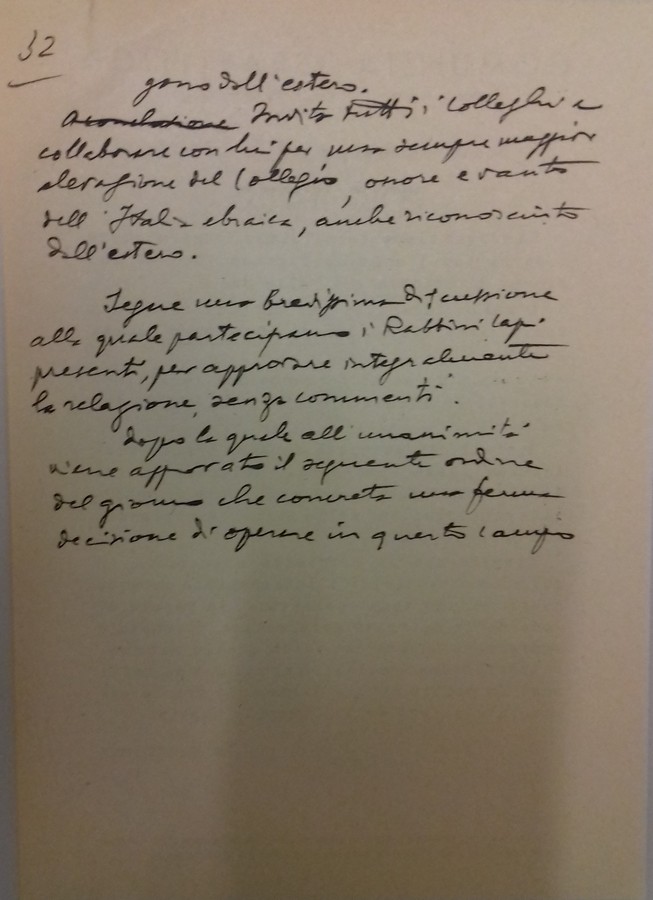 32
gono dall'estero.
A conclusione Invita tutti i colleghi a
collaborare con lui per una sempre maggior
elevazione del Collegio, onore e vanto
dell'Italia ebraica, anche riconosciuto
dall'estero.
Segue una brevissima discussione
alla quale partecipano i Rabbini Capi
presenti, per approvare integralmente
la relazione, senza commenti.
Dopo la quale all'unanimità
viene approvato il seguente ordine
del giorno che concreta una ferma
decisione di operare in questo campo